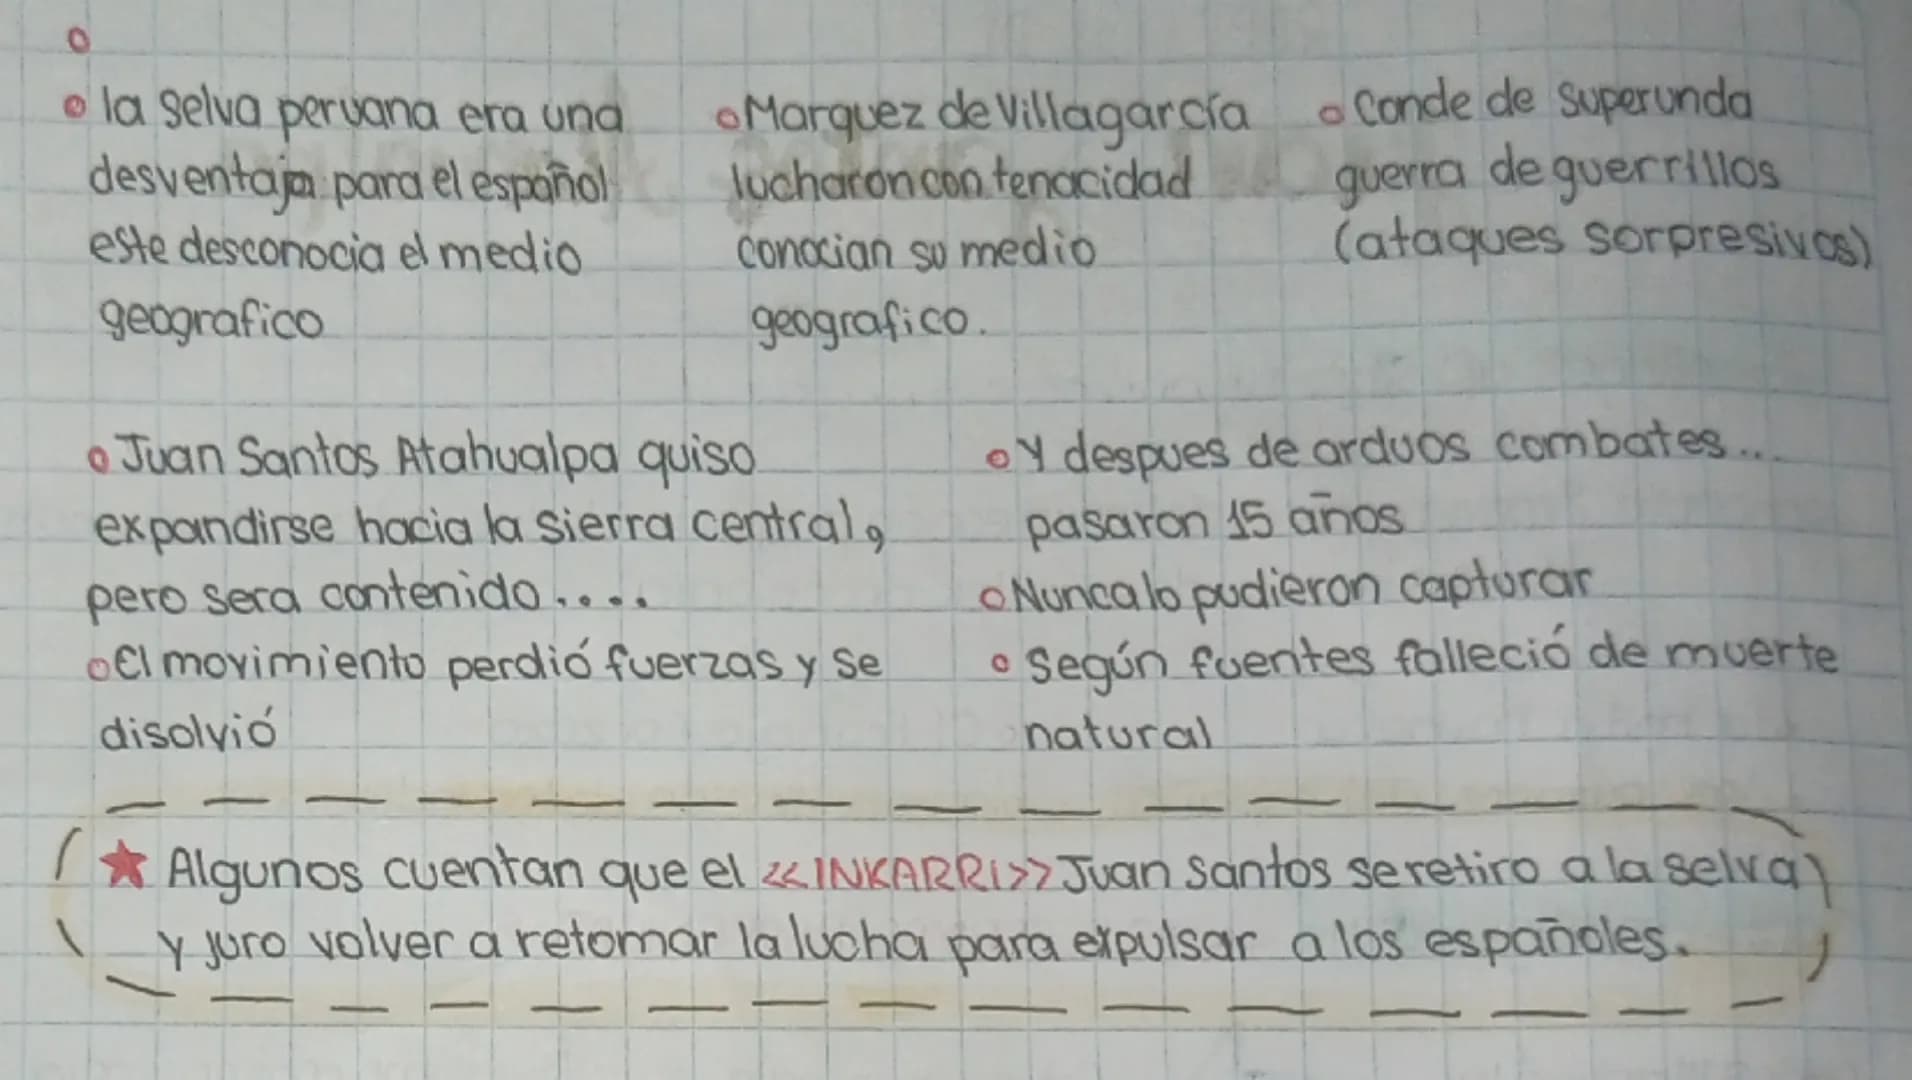 la selva peruana era una
desventaja para el español
este desconocia el medio
geografico
Marquez de Villagarcía
lucharon con tenacidad
conocian su medio
geografico.
Conde de superunda
guerra de guerrillos
(ataques sorpresivos)
Juan Santos Atahualpa quiso
expandirse hacia la sierra central,
pero sera contenido....
El movimiento perdió fuerzas y se
disolvió
Y despues de arduos combates...
pasaron 15 años
Nunca lo pudieron capturar
Según fuentes falleció de muerte
natural
★ Algunos cuentan que el <<INKARRI>> Juan santos se retiro a la selva
y juro volver a retomar la lucha para expulsar a los españoles.